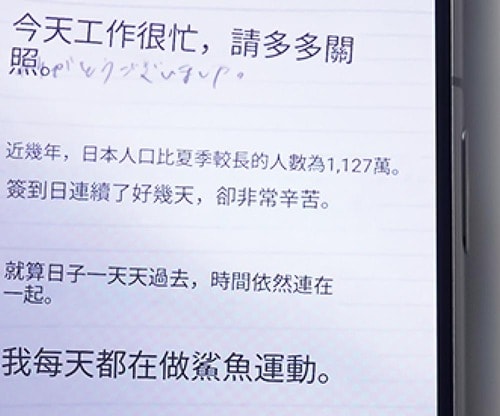 今天工作很忙，請多多關
照。がとうございました。
近幾年，日本人口比夏季較長的人數為1,127萬。
簽到日連續了好幾天，卻非常辛苦。
就算日子一天天過去，時間依然連在
一起。
我每天都在做鯊魚運動。